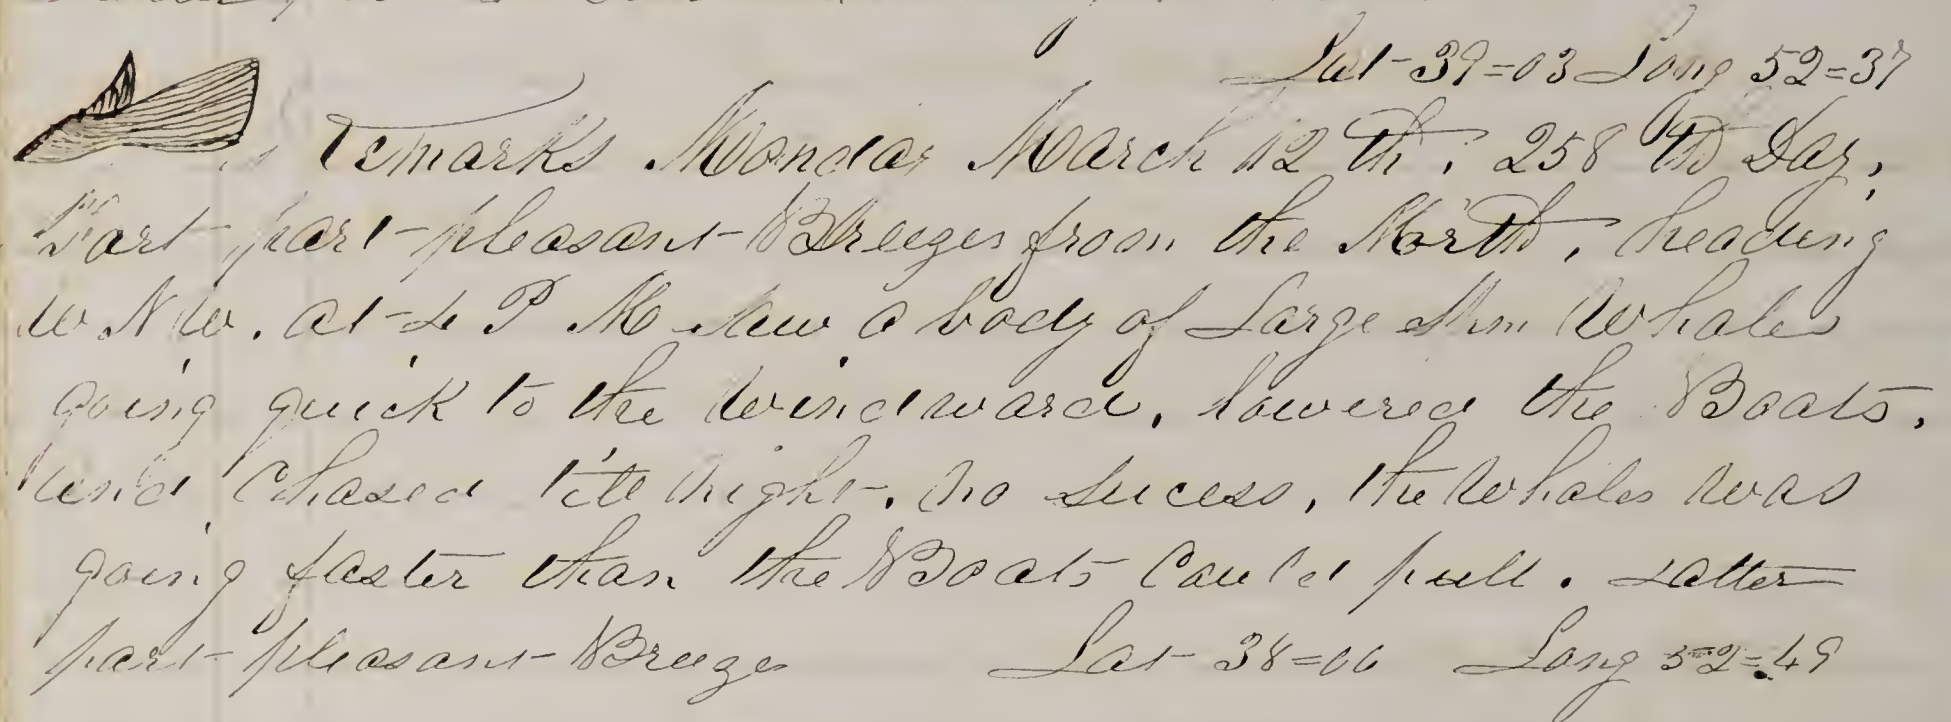 Lat 39=03 Long 52=37
Remarks Monday March 12 th, 258 th Day,
Fort part pleasant Breezes from the North, heading
W N W. at 4 P M saw a body of Large Spm Whales
going quick to the windward, lowered the Boats,
and Chased till night, no sucess, the Whales was
going faster than the Boats Could pull. Latter
part pleasant Breezes Lat 38=00 Long 52=49